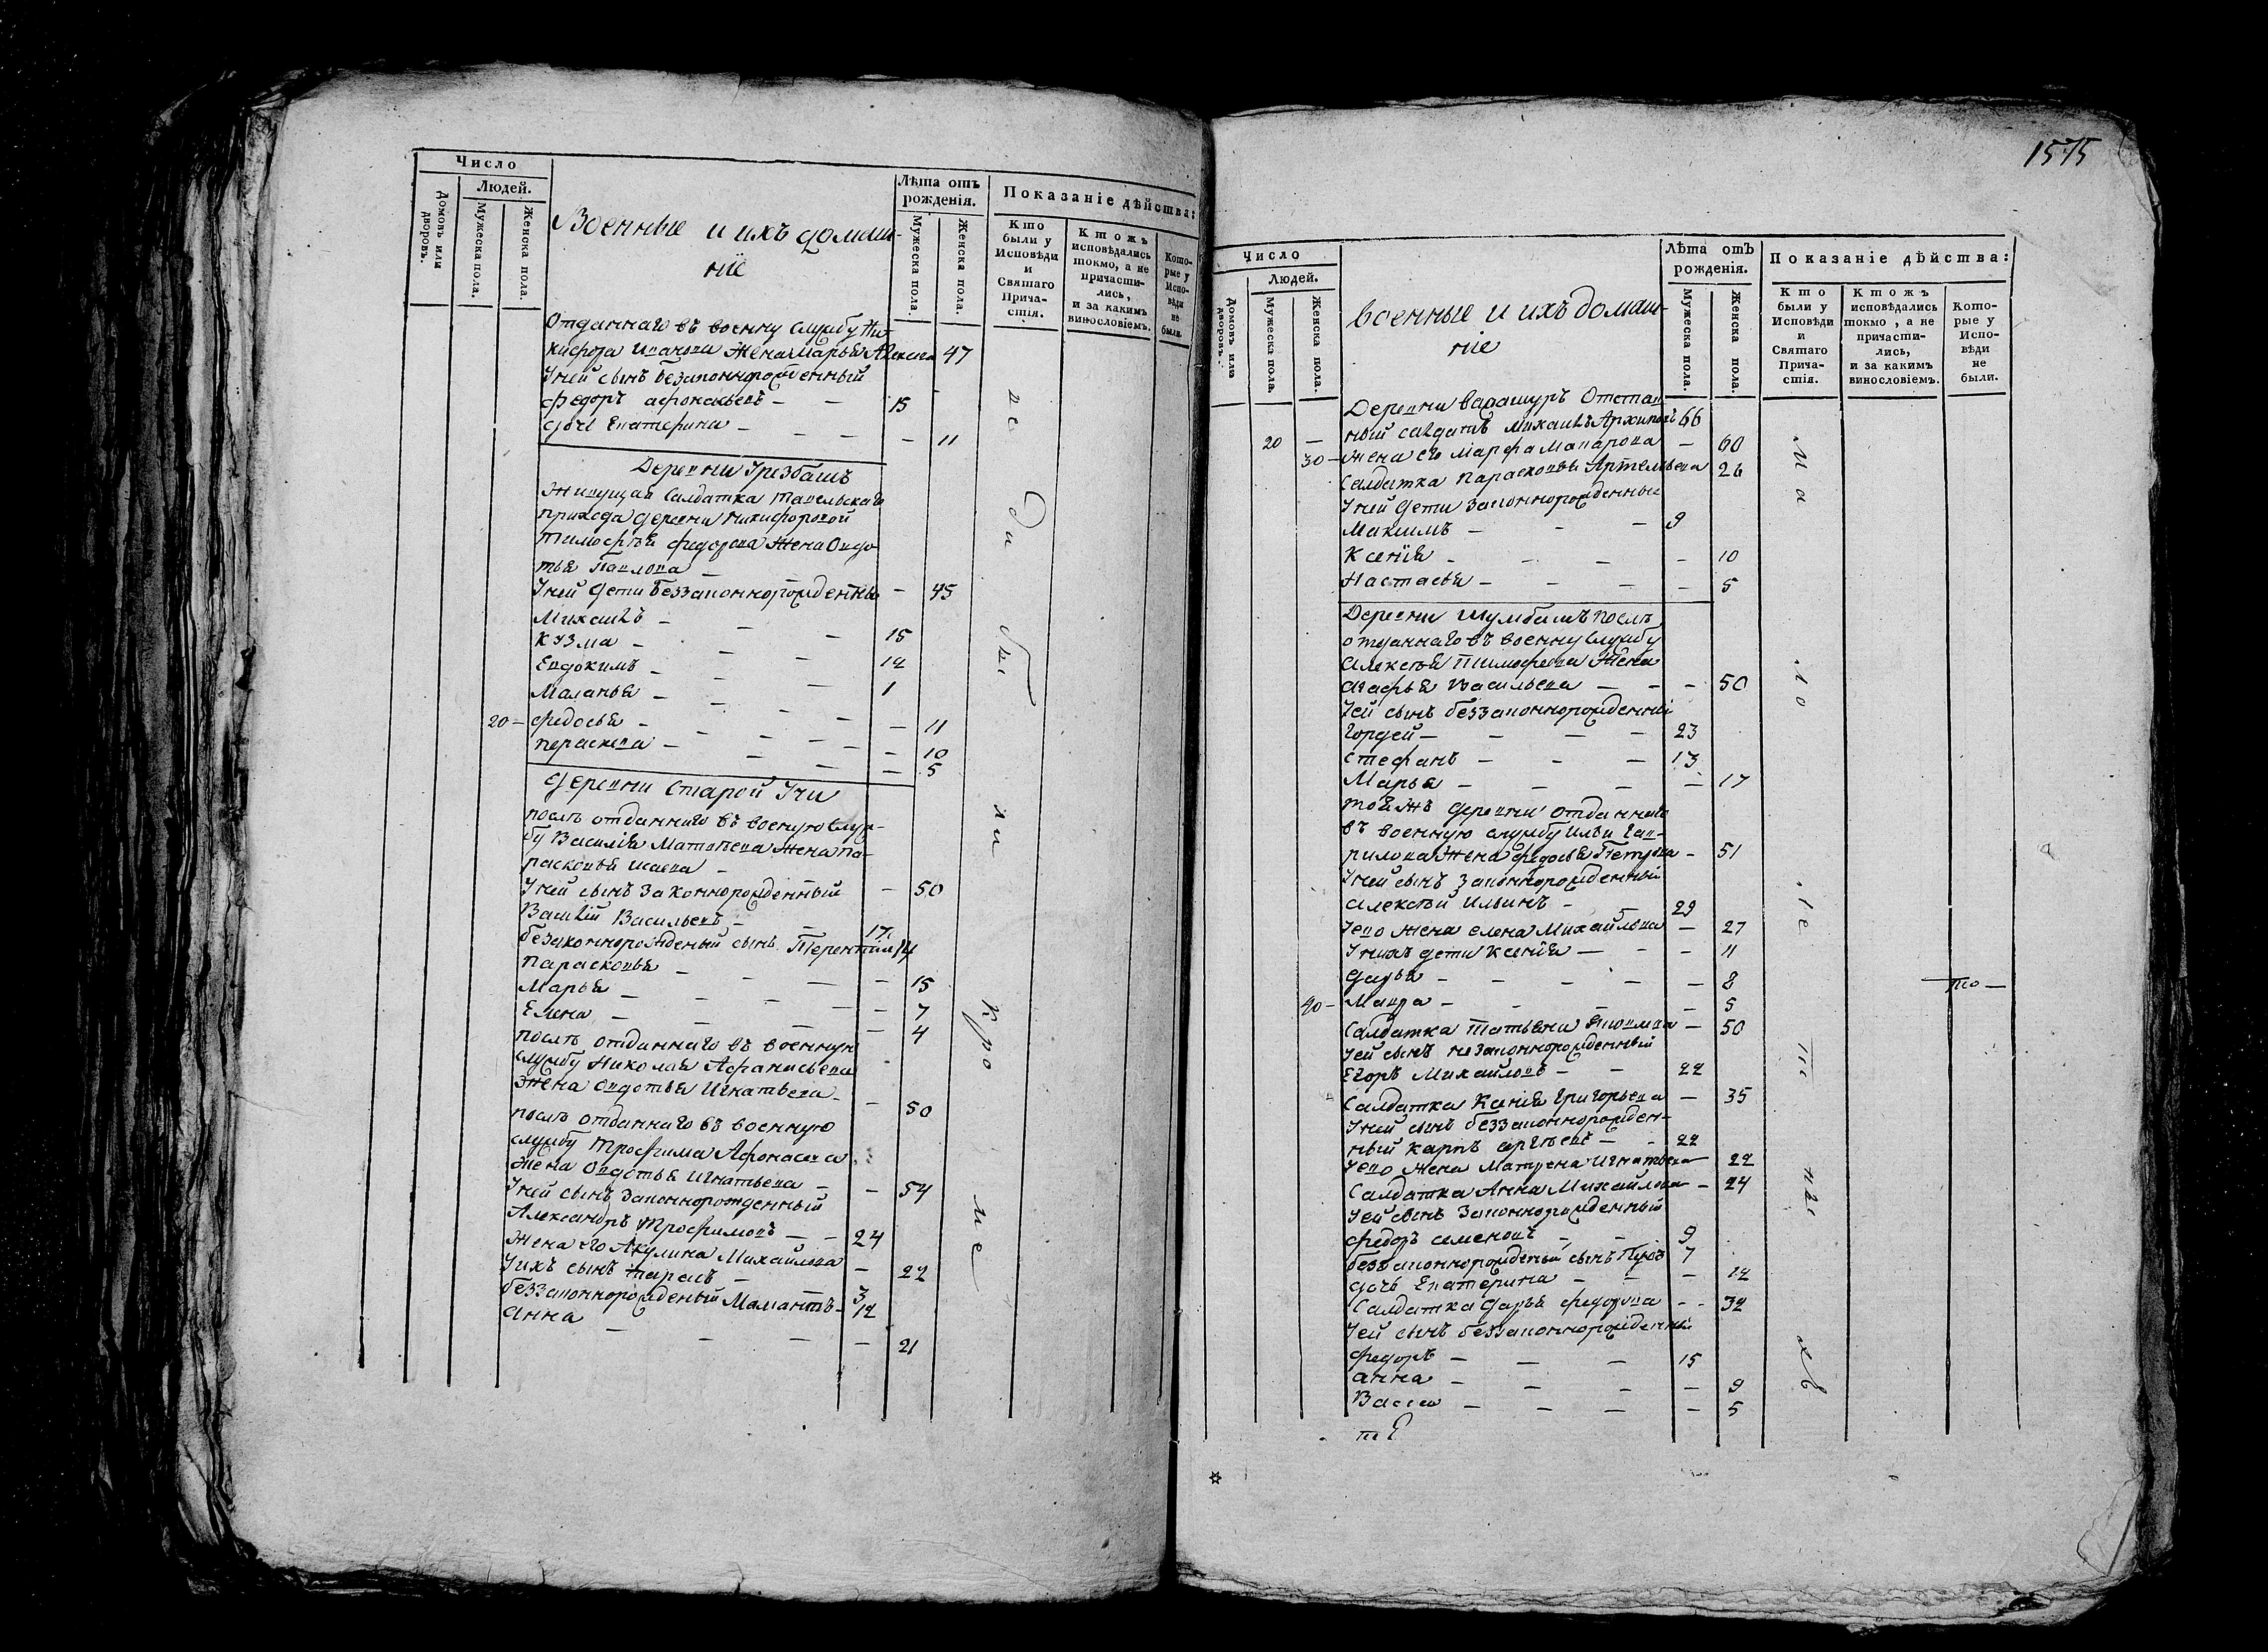 Число
Людей.
Домовъ или дворовъ.
Мужеска пола.
Женска пола.
Военные и ихъ домаш-
ніе
Лѣта отъ
рожденія.
Мужеска пола.
Женска пола.
Показаніе дѣйства:
Кто были у Исповѣди и Святаго Прича-стія.
Ктожъ исповѣдались токмо, а не причасти-лись, и за какимъ винословіемъ.
Кото-рые у Испо-вѣди не были.
Отданнаго въ военну службу Ни-
кифора Жена Марья 47
Уней сынъ безаконнорожденный
Федоръ — — 15
дочь Екатерина — — — — 11
Деревни Урезбашъ
Живущая Салдатка
прихода деревни Никифоровой
Тимофѣя Федорова Жена Овдо-
тья Павлова —
Уней дети беззаконнорожденны — 45
Михаилъ — — — 15
Кузма — — — 12
Евдокимъ — — — 1
Маланья — — — — 11
20 — Федосья — — — — 10
Пераскева — — — — 5
деревни Старой Учи
послѣ отданнаго въ военную служ-
бу Василія Матвѣева Жена Па-
расковья Исаева —
Уней сынъ законнорожденный — 50
Василій Васильевъ — — 17
безаконнорожденый сынъ Терентій 14
Парасковья — — — — 15
Марья — — — — 7
Елена — — — — 4
послѣ отданнаго въ военную
службу Николая Афанасьева
Жена Овдотья Игнатьева — — 50
послѣ отданнаго въ военную
службу Трофима Афонасева
Жена Овдотья Игнатьева — — 54
Уней сынъ законнорожденный
Александръ Трофимовъ — — 24
Жена его Акулина Михайлова — 22
Уихъ сынъ Тарасъ — 3
беззаконнорожденый Мамантъ — 12
Анна — — — — 21
Вс
ѣ
1575
Число
Людей.
Домовъ или дворовъ.
Мужеска пола.
Женска пола.
военные и ихъ домаш-
ніе
Лѣта отъ
рожденія.
Мужеска пола.
Женска пола.
Показаніе дѣйства:
Кто были у Исповѣди и Святаго Прича-стія.
Ктожъ исповѣдались токмо, а не причасти-лись, и за какимъ винословіемъ.
Кото-рые у Испо-вѣди не были.
Деревни Варашуръ Отстав
20 — ный салдатъ Михаилъ Архиповъ 66
30 — жена его Марфа Макарова — 60
Салдатка Парасковья Артемьева 26
Уней дети законнорожденные
Максимъ — — — 9
Ксенія — — — — 10
Настасья — — — — 5
Деревни Шумбашъ послѣ
отданнаго въ военну службу
Алексѣя Тимофеева Жена
Агафья Васильева — — — 50
Уей сынъ беззаконнорожденні
Гордей — — — — 23
Стефанъ — — — 13
Марья — — — — 17
тояжъ деревни отданнаго
въ военную службу Ильи Гав-
рилова Жена Федосья Петрова — 51
Уней сынъ законнорожденный
Алексѣй Ильинъ — — 29
Уево жена Елена Михайлова — 27
Унихъ дети Ксенія — — — 11
Дарья — — — — 8
40 — Мавра — — — — 5
Салдатка Татьяна — 50
Уей сынъ незаконнорожденный
Егоръ Михайловъ — — 22
Салдатка Ксенія Григорьева — 35
Уней сынъ беззаконнорожден-
ный Карпъ — — 22
Уево жена Матрена Игнатьева 22
Салдатка Анна Михайлова — 24
Уей сынъ законнорожденный
Федоръ Семеновъ — — 9
беззаконнорожденый сынъ 7
дочь Екатерина — — — 12
Салдатка Дарья Федорова — — 32
Уей сынъ беззаконнорожденный
Федоръ — — — 15
Анна — — — — 9
Васса — — — — 5